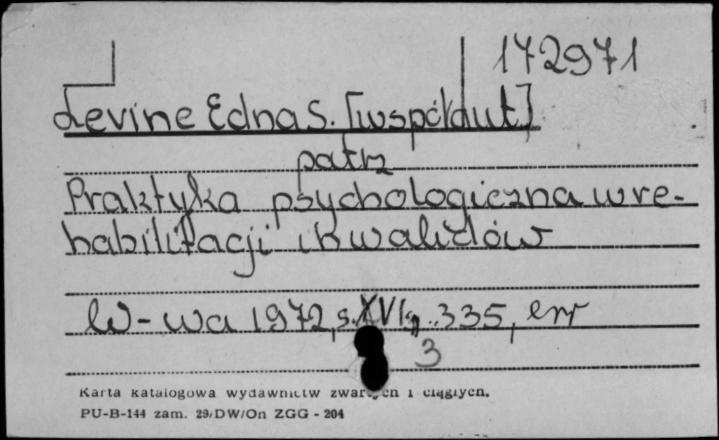 172971
Levine Edna S. [współaut]
patrz
Praktyka psychologiczna w re-
habilitacji inwalidów
W-wa 1972, s. 335, err
3
Karta katalogowa wydawnictw zwartych i ciągłych.
PU-B-144 zam. 29/DW/On ZGG - 204